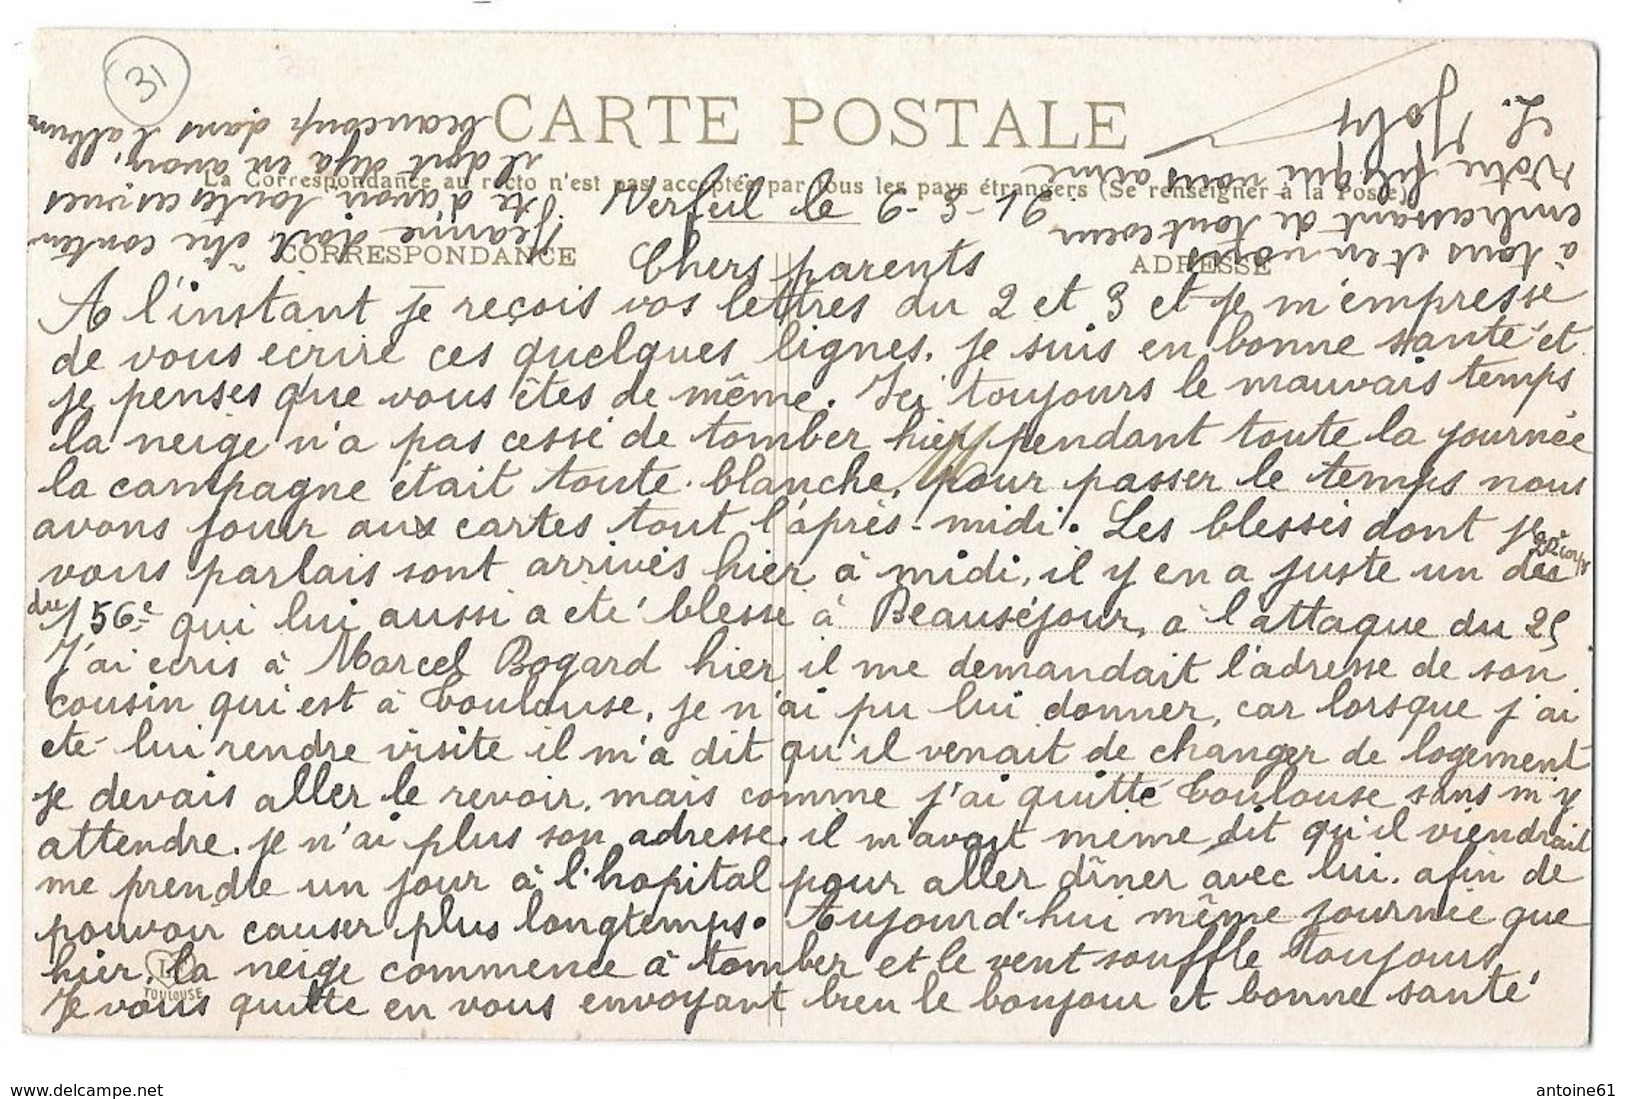 31
CARTE POSTALE
La Correspondance au recto n'est pas acceptée par tous les pays étrangers (Se renseigner à la Poste)
CORRESPONDANCE
ADRESSE
Verfeil le 6-3-16
Chers parents
A l'instant je reçois vos lettres du 2 et 3 et je m'empresse
de vous ecrire ces quelques lignes. je suis en bonne santé et
je penses que vous êtes de même. Ici toujours le mauvais temps
la neige n'a pas cessé de tomber hier pendant toute la journée
la campagne était toute blanche, pour passer le temps nous
avons jouer aux cartes tout l'après-midi. Les blessés dont je
vous parlais sont arrivés hier à midi, il y en a juste un de
du 156e qui lui aussi a eté blessé à Beauséjour, a l'attaque du 25
J'ai ecris à Marcel Bogard hier il me demandait l'adresse de son
cousin qui est à Toulouse, je n'ai pu lui donner, car lorsque j'ai
eté lui rendre visite il m'a dit qu'il venait de changer de logement
je devais aller le revoir, mais comme j'ai quitté Toulouse sans m'y
attendre. je n'ai plus son adresse. il m'avait même dit qu'il viendrait
me prendre un jour à l'hopital pour aller dîner avec lui. afin de
pouvoir causer plus longtemps. Aujourd'hui même journée que
hier, la neige commence à tomber et le vent souffle toujours,
Je vous quitte en vous envoyant bien le bonjour et bonne santé
à tous et en vous
embrassant de tout coeur
Votre fils qui vous aime
L. Joly
Jeanne doit être conten
te d'avoir toutes ces vues
il doit déja en avoir
beaucoup dans l'album
TOULOUSE
www.delcampe.net
antoine61